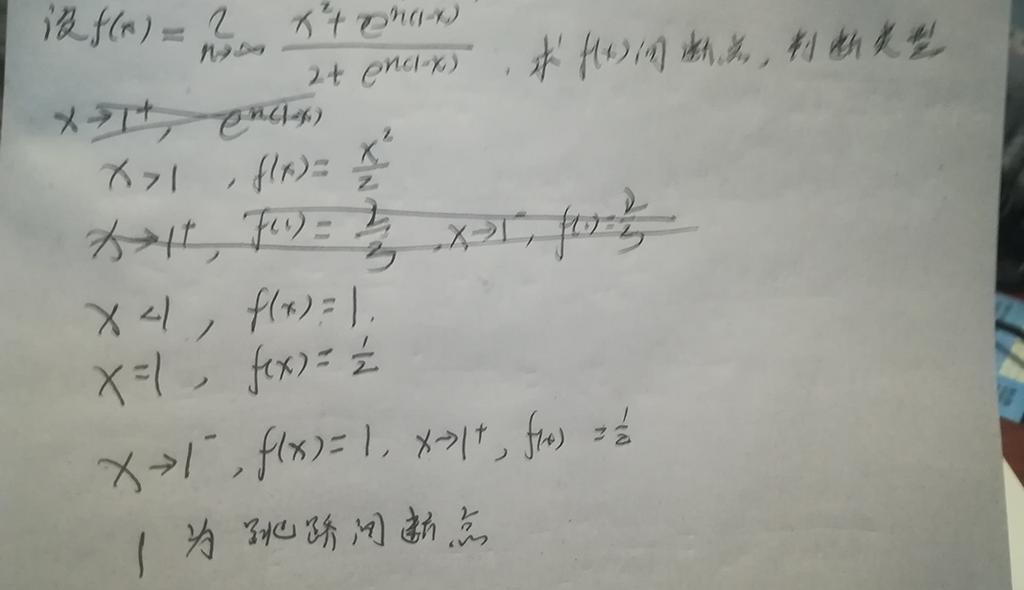 设f(x) = lim n→∞ (x²+e^{n(1-x)})/(2+e^{n(1-x)}) . 求f(x)间断点,判断类型
x→1⁺, e^{n(1-x)}
x>1 , f(x)= x²/2
x→1⁺, f(1)= 2/3 , x→1⁻, f(1)= 2/3
x<1 , f(x)=1.
x=1 , f(x)= 1/2
x→1⁻, f(x)=1, x→1⁺, f(x) = 1/2
1 为 跳跃间断点